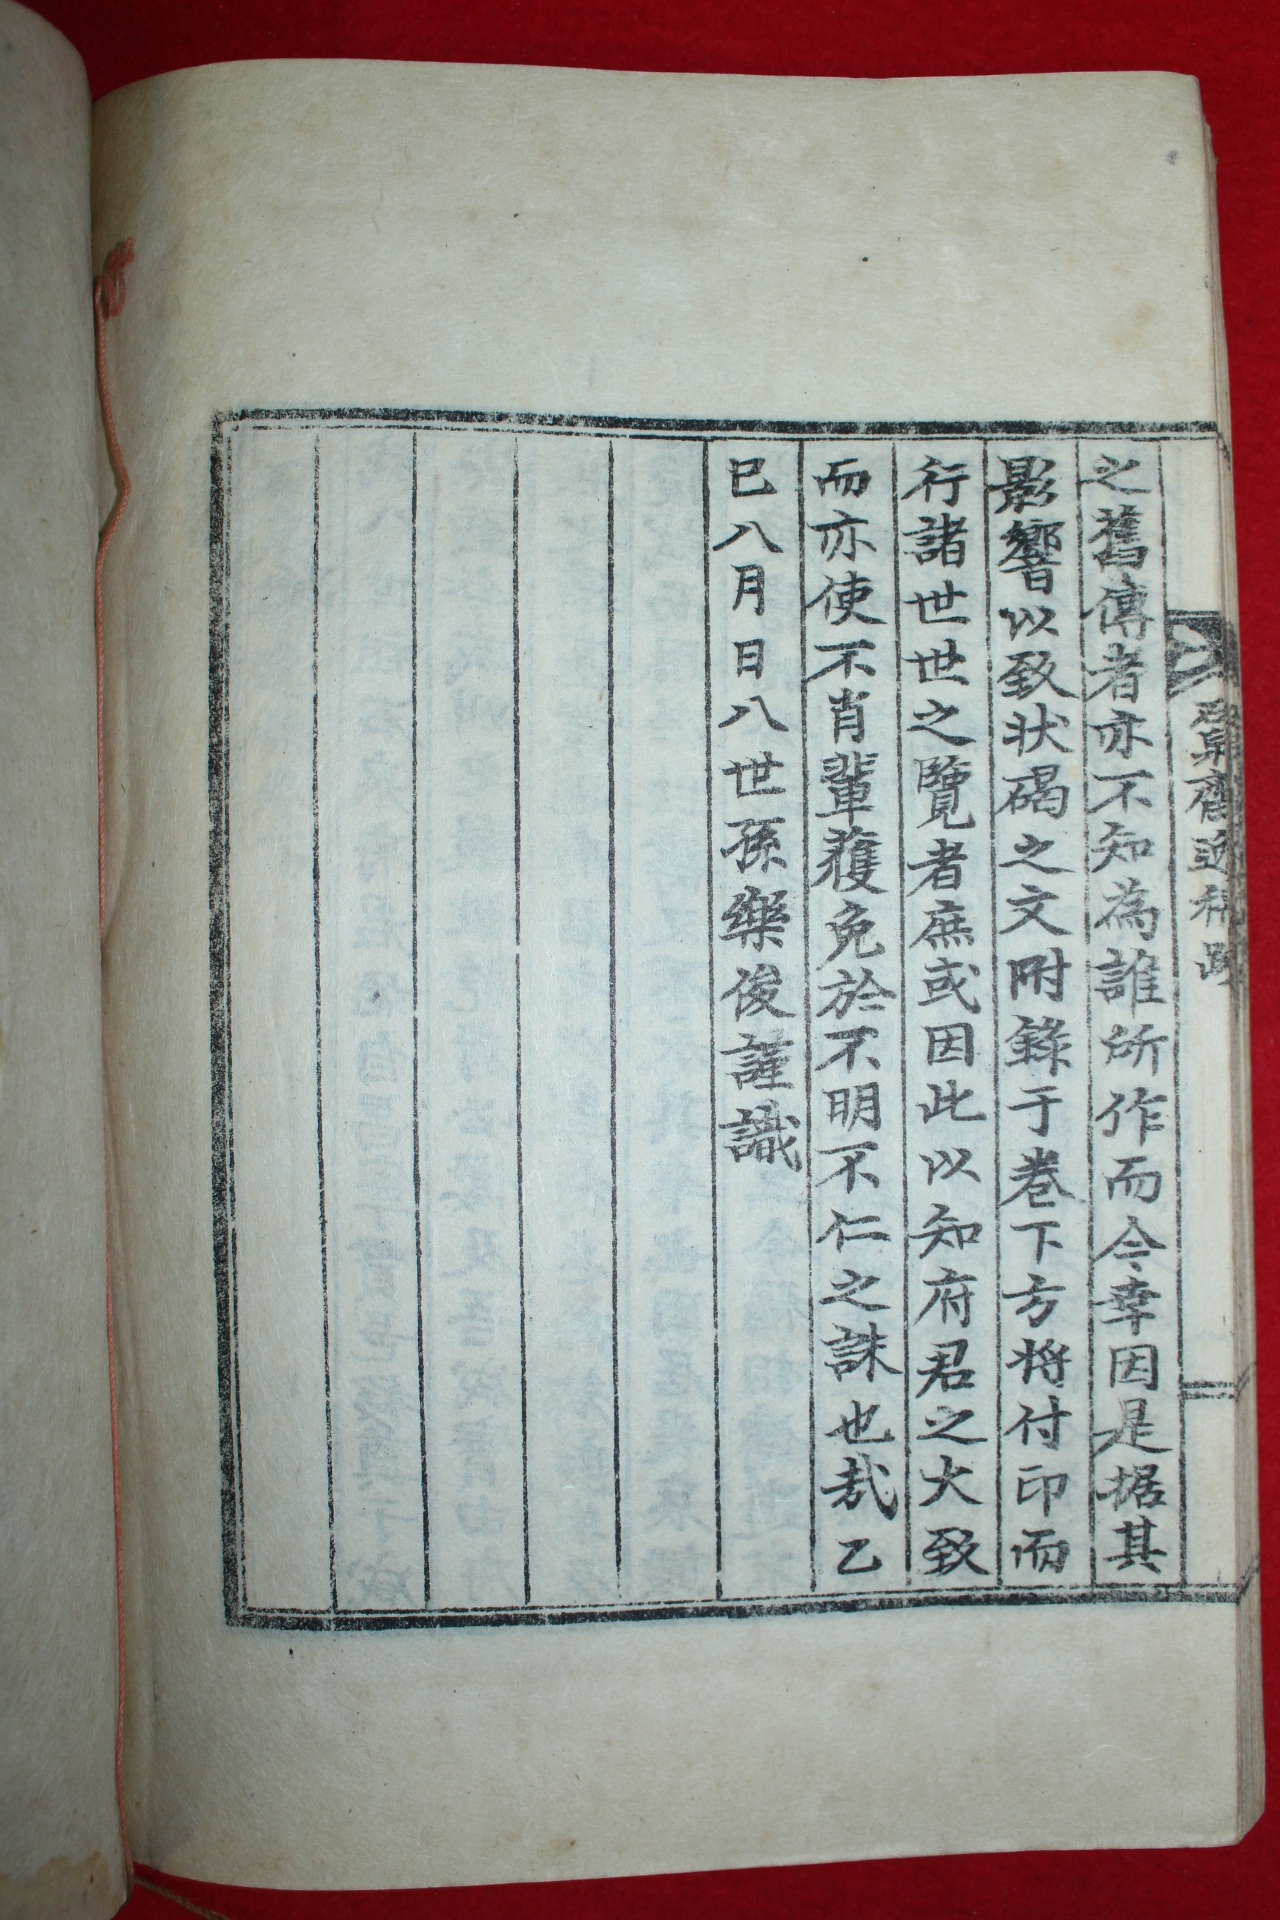 之舊傳者亦不知為誰所作而今幸因是据其
影響以致状碣之文附錄于卷下方將付印而
行諸世世之覽者庶或因此以知府君之大致
而亦使不肖輩獲免於不明不仁之誅也哉乙
巳八月日八世孫樂俊謹識
齋逸稿跋